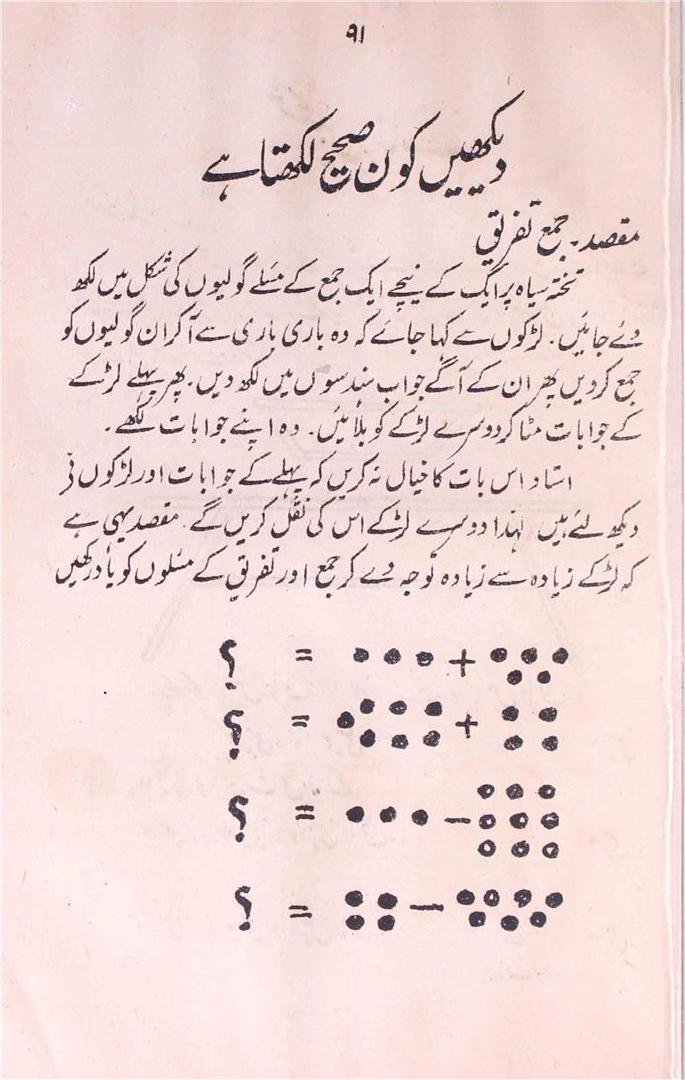 ۹۱
دیکھیں کون صحیح لکھتا ہے
مقصد۔ جمع تفریق
تختہ سیاہ پر ایک کے نیچے ایک جمع کے مسئلے گولیوں کی شکل میں لکھ
دئے جائیں۔ لڑکوں سے کہا جائے کہ وہ باری باری سے آکر ان گولیوں کو
جمع کردیں پھر ان کے آگے جواب ہندسوں میں لکھ دیں۔ پھر پہلے لڑکے
کے جوابات مٹا کر دوسرے لڑکے کو بلائیں۔ وہ اپنے جوابات لکھے۔
استاد اس بات کا خیال نہ کریں کہ پہلے کے جوابات اور لڑکوں نے
دیکھ لئے ہیں لہٰذا دوسرے لڑکے اس کی نقل کریں گے۔ مقصد یہی ہے
کہ لڑکے زیادہ سے زیادہ توجہ دے کر جمع اور تفریق کے مسئلوں کو یاد رکھیں
+ = ؟
+ = ؟
− = ؟
− = ؟